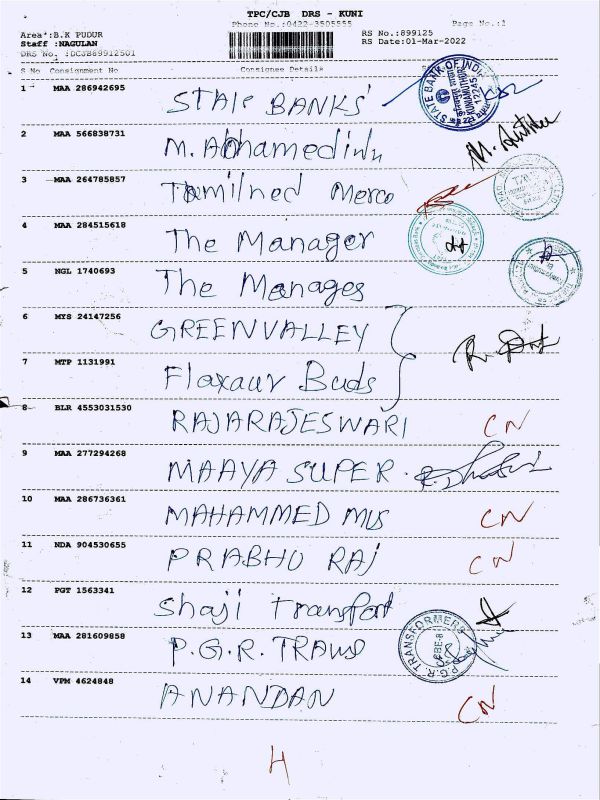 TPC/CJB DRS - KUNI
Phone No.:0422-3505555 Page No.:1
Area*:B.K PUDUR RS No.:899125
Staff :NAGULAN RS Date:01-Mar-2022
DRS No. :DCJB89912501
S No Consignment No Consignee Details
1 MAA 286942695 STATE BANKS
2 MAA 566838731 M.
3 MAA 264785857 Tamilned Merco
4 MAA 284515618 The Manager
5 NGL 1740693 The Manages
6 MYS 24147256 GREENVALLEY
7 MTP 1131991 Flaxaur Buds
8 BLR 4553031530 RAJARAJESWARI CN
9 MAA 277294268 MAAYA SUPER.
10 MAA 286736361 MAHAMMED MUS CN
11 NDA 904530655 PRABHU RAJ CN
12 PGT 1563341 Shaji Transport
13 MAA 281609858 P.G.R. TRANS
14 VPM 4624848 ANANDAN CN
STATE BANK OF INDIA
KUNIAMUTHUR
12245
P.G.R. TRANSFORMERS
CBE-8
H